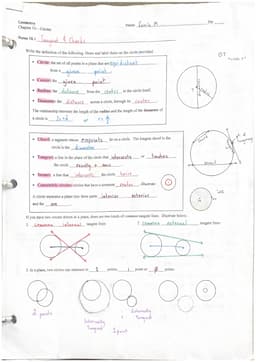 Geometry
Name
Chapter 10 – Circles
Notes 10.1 Tangents & Chords
Write the definition of the following. Draw and label them on the circle provided.
• Circle: the set of all points in a plane that are equidistant
from a given point.
• Center: the given point.
• Radius: the distance from the center to the circle itself.
• Diameter: the distance across a circle, through its center
The relationship between the length of the radius and the length of the diameter of
a circle is
• Chord: a segment whose endpoints lie on a circle. The longest chord in the
circle is the diameter
• Tangent: a line in the plane of the circle that intersects
the circle exactly
• Secant: a line that intersects the circle twice
• Concentric circles: circles that have a common center. Illustrate:
A circle separates a plane into three parts: interior, exterior
and the
If you have two circles drawn in a plane, there are two kinds of common tangent lines. Illustrate below.
1. Common internal tangent lines
2. Common external tangent lines
3. In a plane, two circles can intersect in 2 points, 1 point or 0 points.
2 points
Externally Tangent
Internally Tangent
1 point